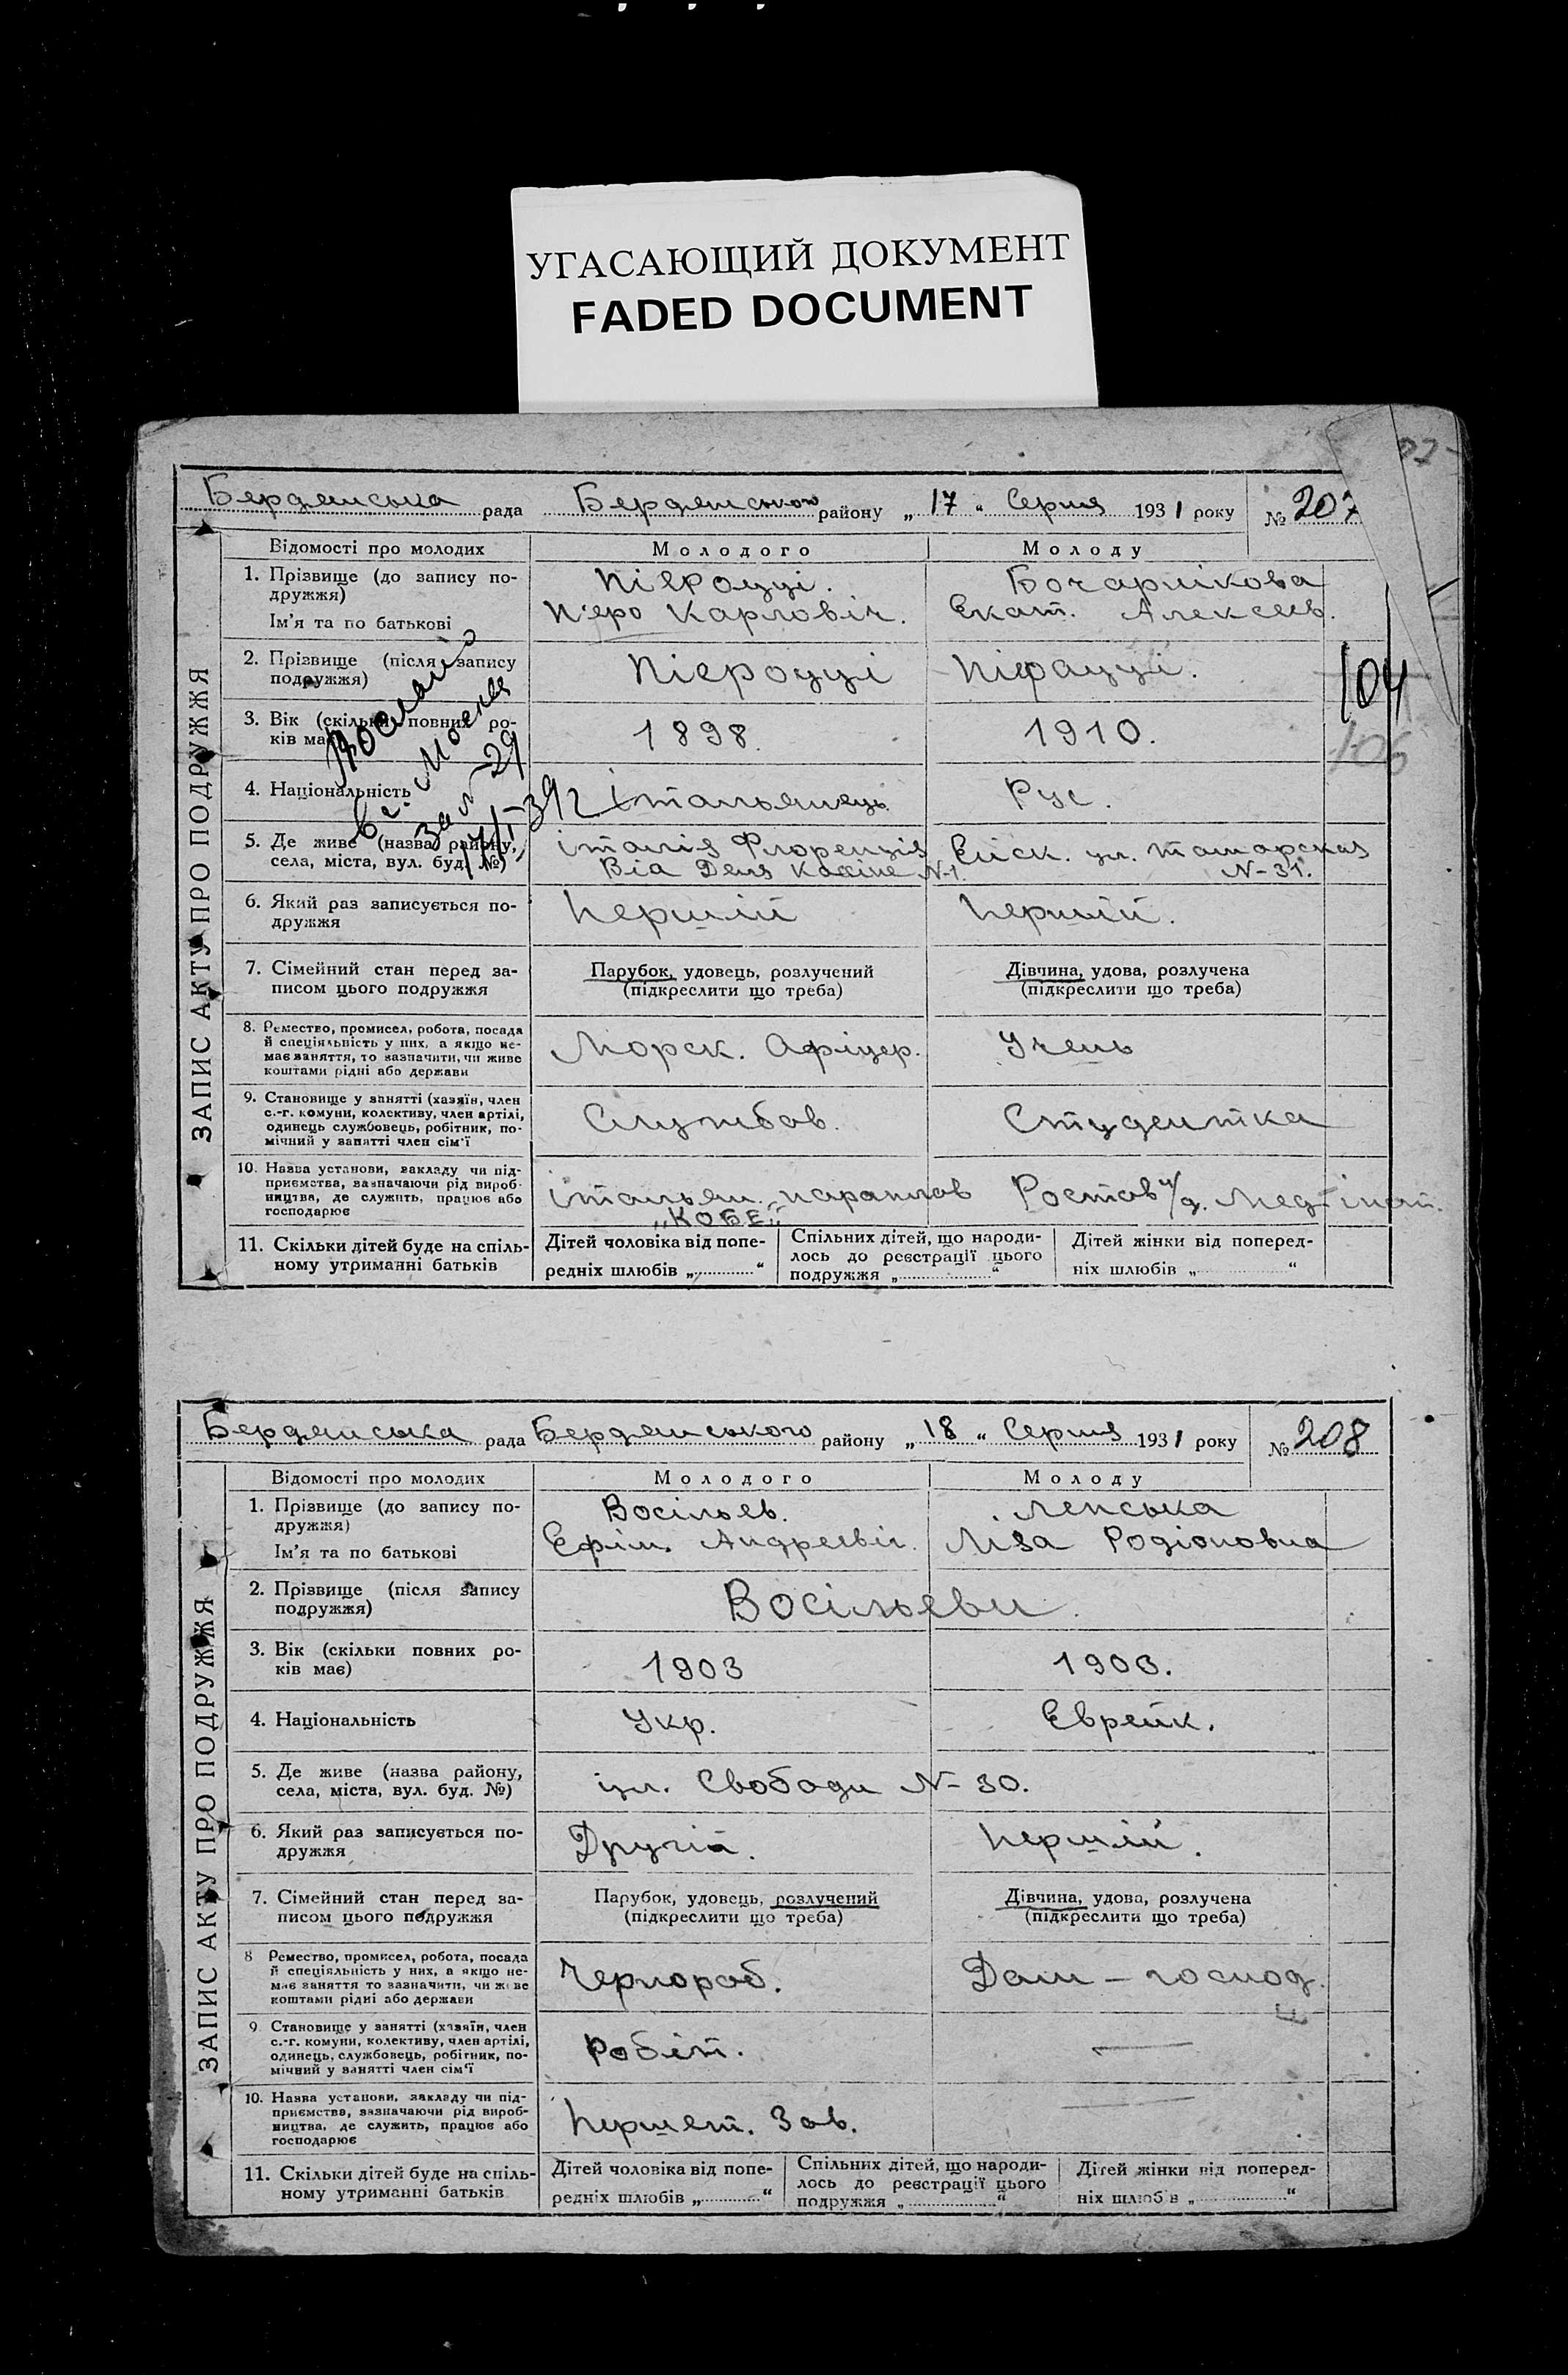 УГАСАЮЩИЙ ДОКУМЕНТ
FADED DOCUMENT
Бердянська рада Бердянського району „17“ Серпня 1931 року № 207
ЗАПИС АКТУ ПРО ПОДРУЖЖЯ
Відомості про молодих Молодого Молоду
1. Прізвище (до запису по-
дружжя)
Ім'я та по батькові
Піероцці. Бочарнікова
П'єро Карловіч. Екат. Алексеев.
2. Прізвище (після запису
подружжя)
Піероцці Піероцці.
104
106
3. Вік (скільки повних ро-
ків має)
1898. 1910.
4. Національність
Італьянець Рус.
5. Де живе (назва району,
села, міста, вул. буд. №)
Італія Флоренція Ейск. ул. Татарская
Віа Деля N-1. N-31.
6. Який раз записується по-
дружжя
Першій Першій.
7. Сімейний стан перед за-
писом цього подружжя
Парубок, удовець, розлучений Дівчина, удова, розлучена
(підкреслити що треба) (підкреслити що треба)
8. Ремество, промисел, робота, посада
й спеціяльність у них, а якщо не-
має заняття, то зазначити, чи живе
коштами рідні або держави
Морск. Офіцер. Учень
9. Становище у занятті (хазяїн, член
с.-г. комуни, колективу, член артілі,
одинець службовець, робітник, по-
мічний у занятті член сім'ї
Службов. Студентка
10. Назва установи, закладу чи під-
приємства, зазначаючи рід вироб-
ництва, де служить, працює або
господарює
Італьян. пароплав Ростов н/д. Мед-інст.
„КОБЕ“
11. Скільки дітей буде на спіль-
ному утриманні батьків
Дітей чоловіка від попе-
редніх шлюбів „ “
Спільних дітей, що народи-
лось до реєстрації цього
подружжя „ “
Дітей жінки від поперед-
ніх шлюбів „ “
Бердянська рада Бердянського району „18“ Серпня 1931 року № 208
ЗАПИС АКТУ ПРО ПОДРУЖЖЯ
Відомості про молодих Молодого Молоду
1. Прізвище (до запису по-
дружжя)
Ім'я та по батькові
Восільев. Ленська
Ефім. Андреевіч. Ліза Родіоновна
2. Прізвище (після запису
подружжя)
Восільеви.
3. Вік (скільки повних ро-
ків має)
1903 1903.
4. Національність
Укр. Еврейк.
5. Де живе (назва району,
села, міста, вул. буд. №)
ул. Свободи N-30.
6. Який раз записується по-
дружжя
Другій. Першій.
7. Сімейний стан перед за-
писом цього подружжя
Парубок, удовець, розлучений Дівчина, удова, розлучена
(підкреслити що треба) (підкреслити що треба)
8 Ремество, промисел, робота, посада
й спеціяльність у них, а якщо не-
має заняття то зазначити, чи живе
коштами рідні або держави
Чернороб. Дом-господ.
9. Становище у занятті (хазяїн, член
с.-г. комуни, колективу, член артілі,
одинець, службовець, робітник, по-
мічний у занятті член сім'ї
Робіт.
10. Назва установи, закладу чи під-
приємства, зазначаючи рід вироб-
ництва, де служить, працює або
господарює
Першет. Зав.
11. Скільки дітей буде на спіль-
ному утриманні батьків
Дітей чоловіка від попе-
редніх шлюбів „ “
Спільних дітей, що народи-
лось до реєстрації цього
подружжя „ “
Дітей жінки від поперед-
ніх шлюбів „ “